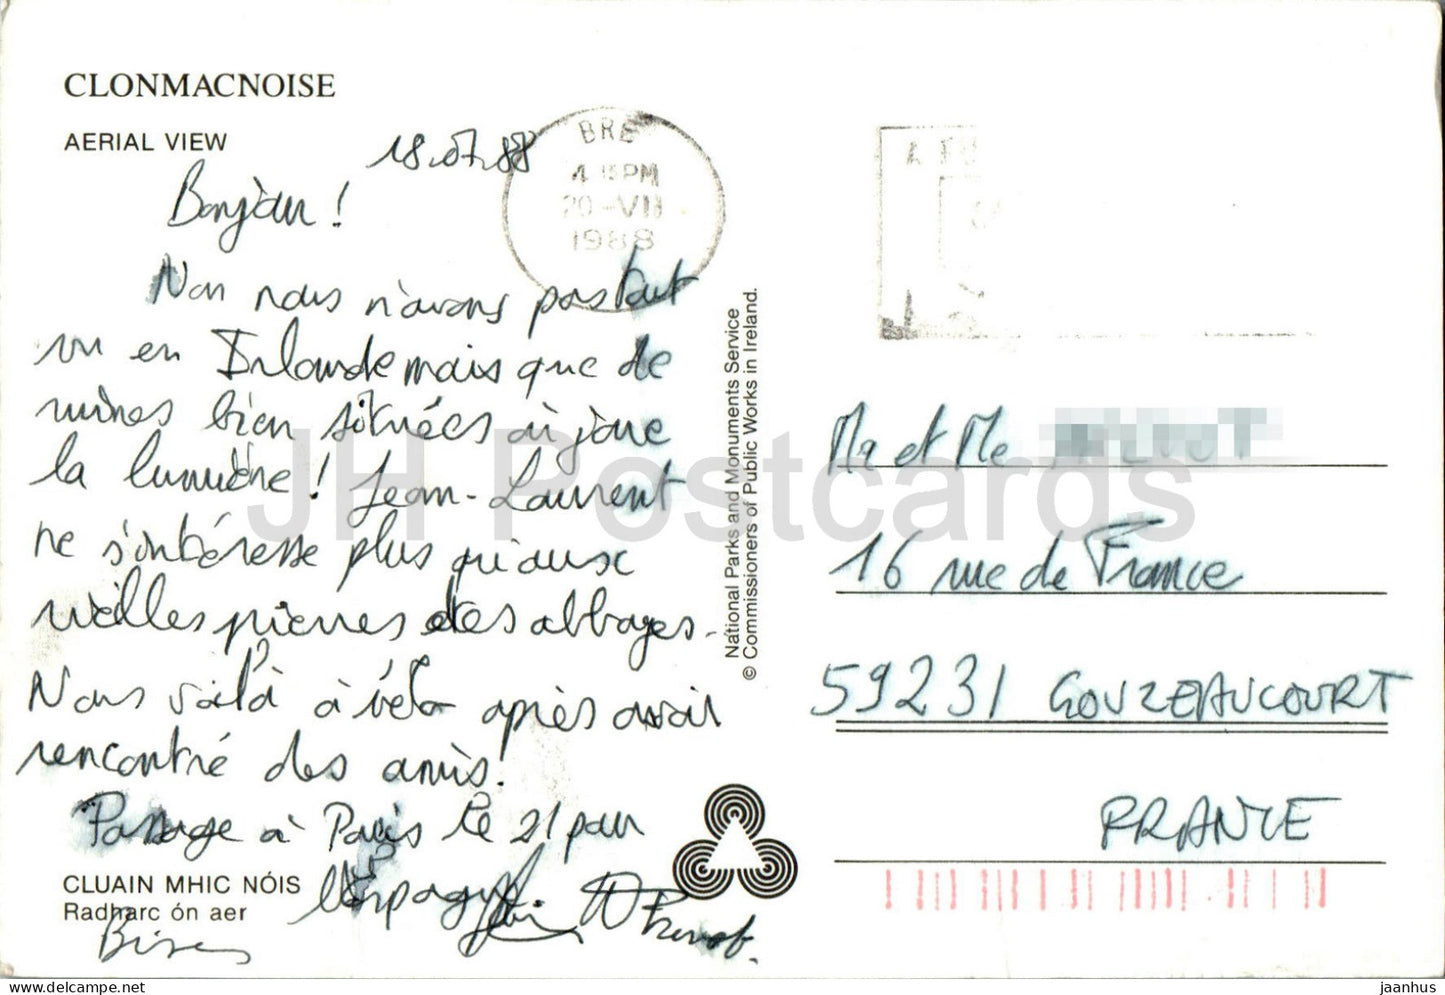 CLONMACNOISE
AERIAL VIEW
18.07.88
Bonjour !
Non nous n'avons pas tout
vu en Irlande mais que de
ruines bien situées où joue
la lumière ! Jean-Laurent
ne s'intéresse plus qu'aux
vieilles pierres des abbayes.
Nous voilà à vélo après avoir
rencontré des amis.
Passage à Paris le 21 pour
Bises
CLUAIN MHIC NÓIS
Radharc ón aer
BRE
4 15 PM
20-VII
1988
National Parks and Monuments Service
© Commissioners of Public Works in Ireland.
Mr et Me
16 rue de France
59231 GOUZEAUCOURT
FRANCE
JH Postcards
jaanhus